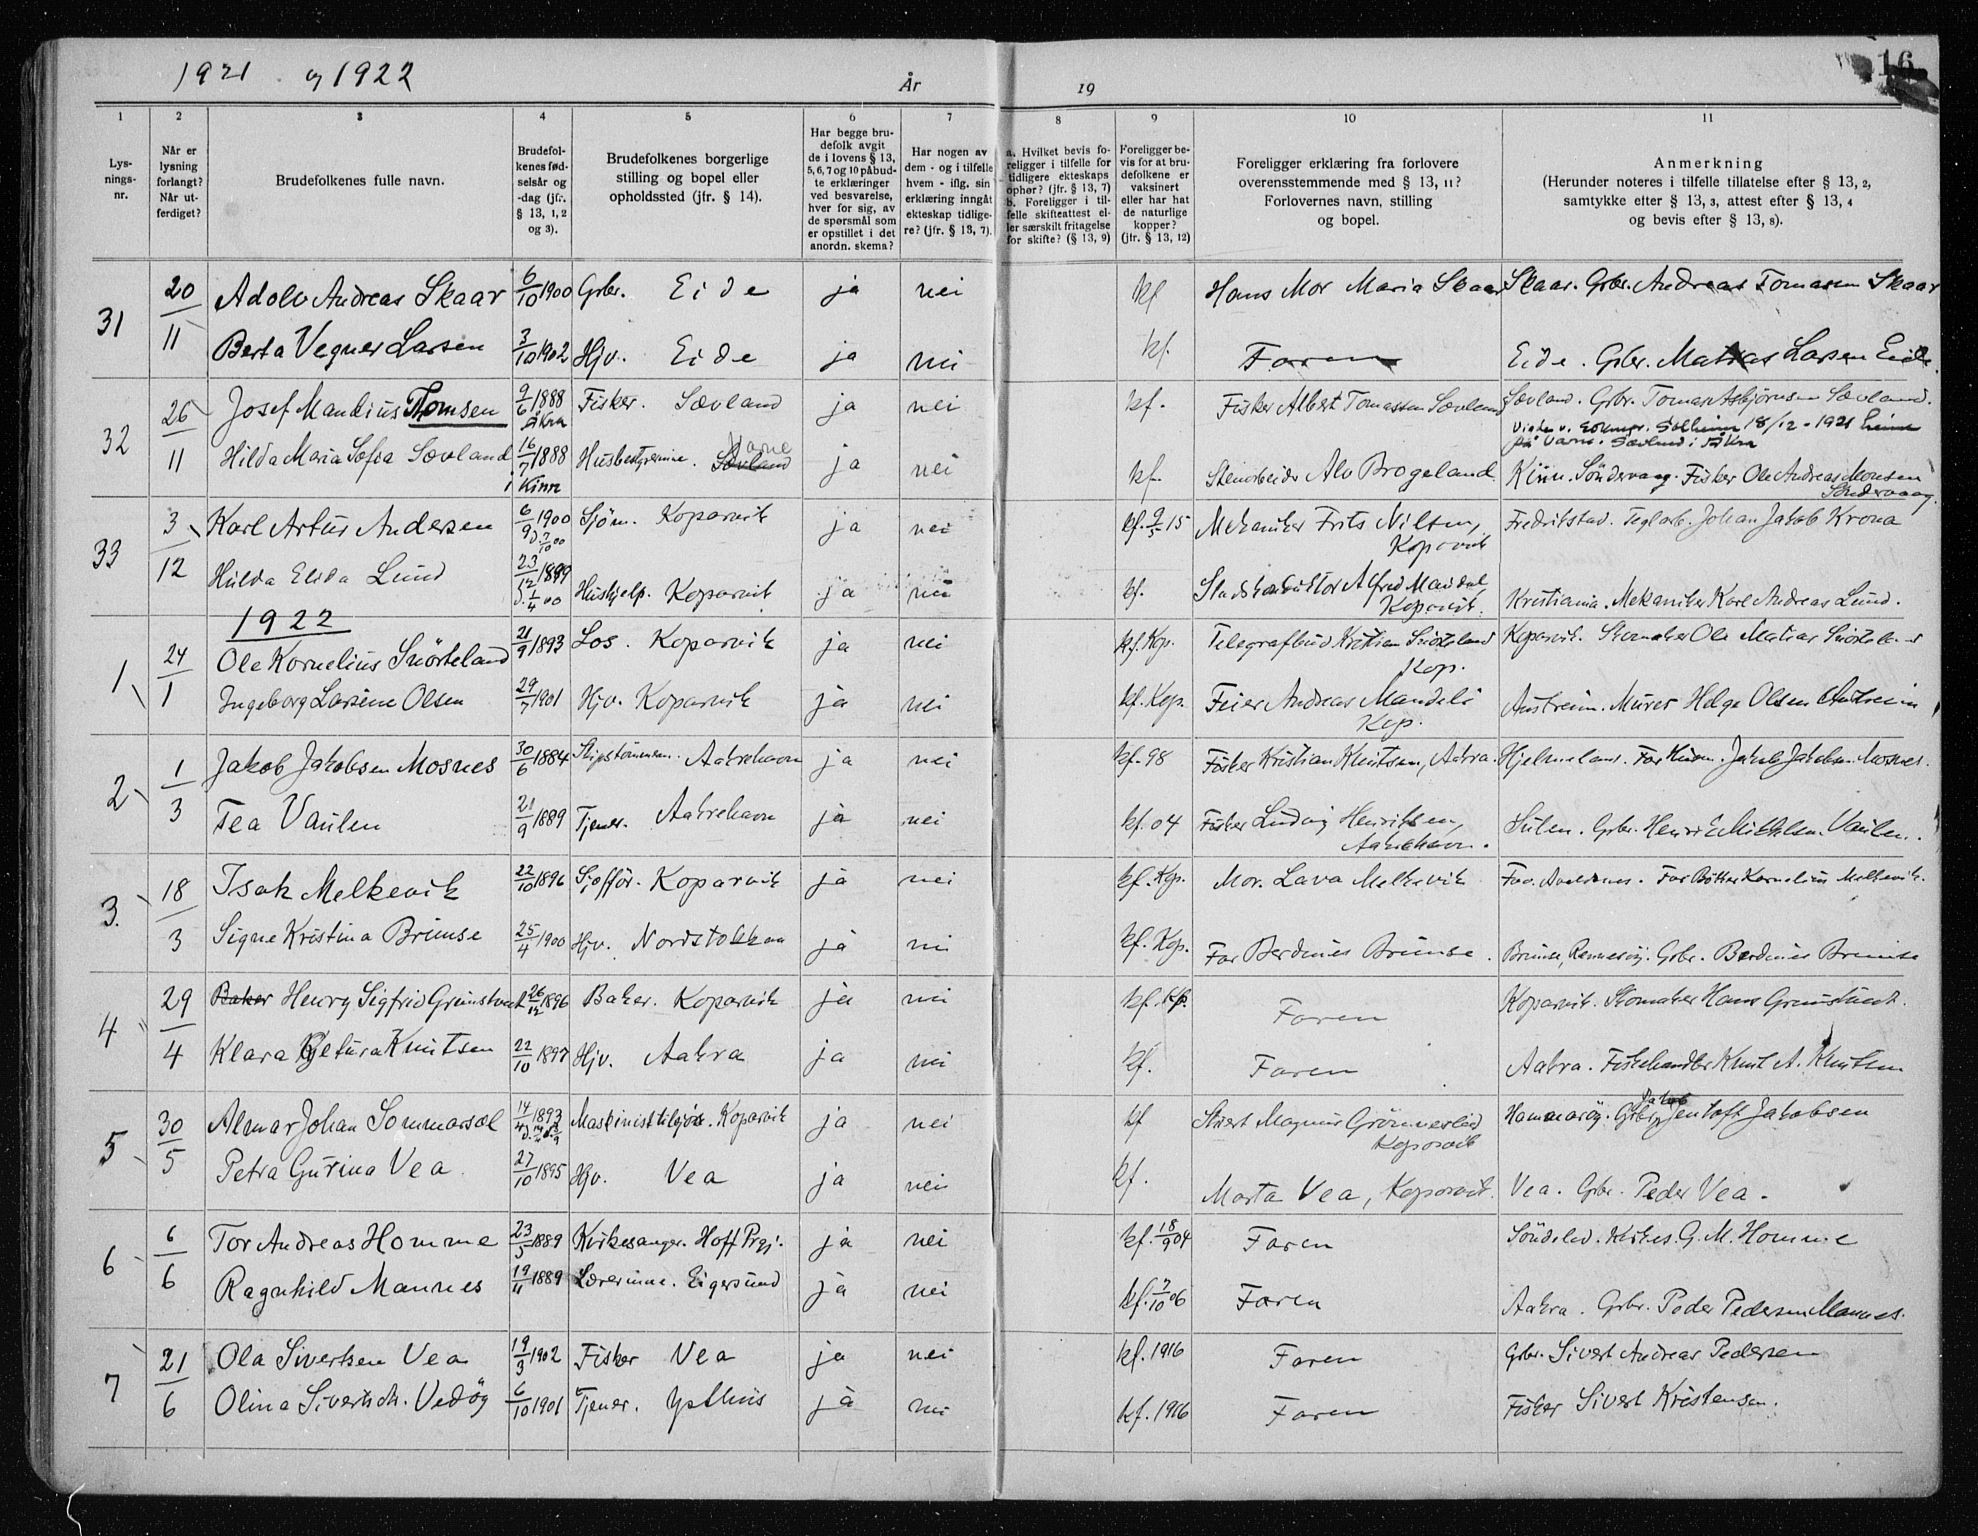 1921 og 1922
År
19
16
1 2 3 4 5 6 7 8 9 10 11
Lys-
nings-
nr.
Når er
lysning
forlangt?
Når ut-
ferdiget?
Brudefolkenes fulle navn.
Brudefol-
kenes fød-
selsår og
-dag (jfr.
§ 13, 1, 2
og 3).
Brudefolkenes borgerlige
stilling og bopel eller
opholdssted (jfr. § 14).
Har begge bru-
defolk avgit
de i lovens § 13,
5, 6, 7 og 10 påbud-
te erklæringer
ved besvarelse,
hver for sig, av
de spørsmål som
er opstillet i det
anordn. skema?
Har nogen av
dem - og i tilfelle
hvem - iflg. sin
erklæring inngåt
ekteskap tidlige-
re? (jfr. § 13, 7).
a. Hvilket bevis fo-
religger i tilfelle for
tidligere ekteskaps
ophør? (jfr. § 13, 7)
b. Foreligger i til-
felle skifteattest el-
ler særskilt fritagelse
for skifte? (§ 13, 9)
Foreligger be-
vis for at bru-
defolkene er
vaksinert
eller har hat
de naturlige
kopper?
(jfr. § 13, 12)
Foreligger erklæring fra forlovere
overensstemmende med § 13, 11?
Forlovernes navn, stilling
og bopel.
Anmerkning
(Herunder noteres i tilfelle tillatelse efter § 13, 2,
samtykke efter § 13, 3, attest efter § 13, 4
og bevis efter § 13, 8).
31 20/11 Adolv Andreas Skaar 6/10 1900 Grbr. Eide ja nei kf Hans Mor Maria Skaar Skaar. Grbr. Andreas Tomassen Skaar
Berta Vegner Larsen 3/10 1902 Hjv. Eide ja nei kf. Faren Eide. Grbr. Matias Larsen Eide.
32 26/11 Josef Mandius Tomsen 9/6 1888 Åkra Fisker. Sævland ja nei kf. Fisker Albert Tomassen Sævland Sævland. Grbr. Tomas Asbjørnsen Sævland.
Viede v. Solheim 18/12 - 1921
på Varne. Sævland i Åkra
Hilda Maria Sofea Sævland 16/7 1888 i Kinn Husbestyrerinne. Sævland Varne ja nei kf. Stenarbeider Alv Brogeland Kinn. Söndervaag. Fisker Ole Andreas Monsen
Söndervaag.
33 3/12 Karl Artur Andersen 6/9 1900 D. 7/10 00 Sjöm. Koparvik ja nei kf. 9/5 15 Mekaniker Frits Nilsen,
Koparvik Fredrikstad. Teglarb. Johan Jakob Krona
Hulda Elida Lund 23/12 1899 D. 1/4 00 Hushjelp. Koparvik ja nei kf. Alfred Mandal,
Koparvik. Kristiania. Mekaniker Karl Andreas Lund.
1922
1 24/1 Ole Kornelius Snörteland 21/9 1893 Los. Koparvik ja nei kf. Kop. Telegrafbud Kristian Snörteland
Kop. Koparvik. Skomaker Ole Matias
Ingeborg Larsine Olsen 29/7 1901 Hjv. Koparvik ja nei kf. Kop. Feier Andreas Mandeli
Kop. Austreim. Murer Helge Olsen Austreim
2 1/3 Jakob Jakobsen Mosnes 30/6 1884 Skipstömmerm. Aakrehavn ja nei kf. 98 Fisker Kristian Knutsen, Aakra. Hjelmeland. Far Husm. Jakob Jakobsen Mosnes.
Tea Vaulen 21/9 1889 Tjener. Aakrehavn ja nei kf. 04 Fisker Ludvig Henriksen,
Aakrehavn. Sulen. Grbr. Henrik Mikkelsen Vaulen.
3. 18/3 Isak Melkevik 22/10 1896 Sjofför. Koparvik ja nei kf. Kop. Mor. Lava Melkevik Far Bötker Kornelius Melkevik.
Signe Kristina Brimse 25/4 1900 Hjv. Nordstokkaa ja nei kf. Kop. Far Berdines Brimse. Brimse, Rennesöy. Grbr. Berdines Brimse
4 29/4 Baker Henry Sigfrid Grimstvedt 26/12 1896 Baker. Koparvik ja nei kf. Kop. Faren Koparvik. Skomaker Hans Grimstvedt.
Klara Kjetura Knutsen 22/10 1897 Hjv. Aakra ja nei kf. Faren Aakra. Fiskehandler Knut A. Knutsen
5 30/5 Almar Johan Sommarsæl 14/4 1893 Maskinist tilsjös. Koparvik ja nei kf Magnus Grönnerlid
Koparvik Hammaröy. Grbr. Jakob Jentoft Jakobsen
Petra Gurina Vea 27/10 1895 Hjv. Vea ja nei kf. Marta Vea, Koparvik. Vea. Grbr. Peder Vea.
6 6/6 Tor Andreas Homme 23/5 1889 Kirkesanger. Hoff Prgj. ja nei kf. 18/9 04 Faren Söndeled. Kirkes. G. M. Homme
Ragnhild Mannes 19/11 1889 Lærerinne. Eigersund ja nei kf. 7/10 06 Faren Aakra. Grbr. Peder Pedersen Mannes.
7 21/6 Ola Sivertsen Vea 19/3 1902 Fisker Vea ja nei kf. 1916 Faren Grbr. Sivert Andreas Pedersen
Olina Sivertsdt. Vedöy 6/10 1901 Tjener. ja nei kf. 1916 Faren Fisker Sivert Kristensen.